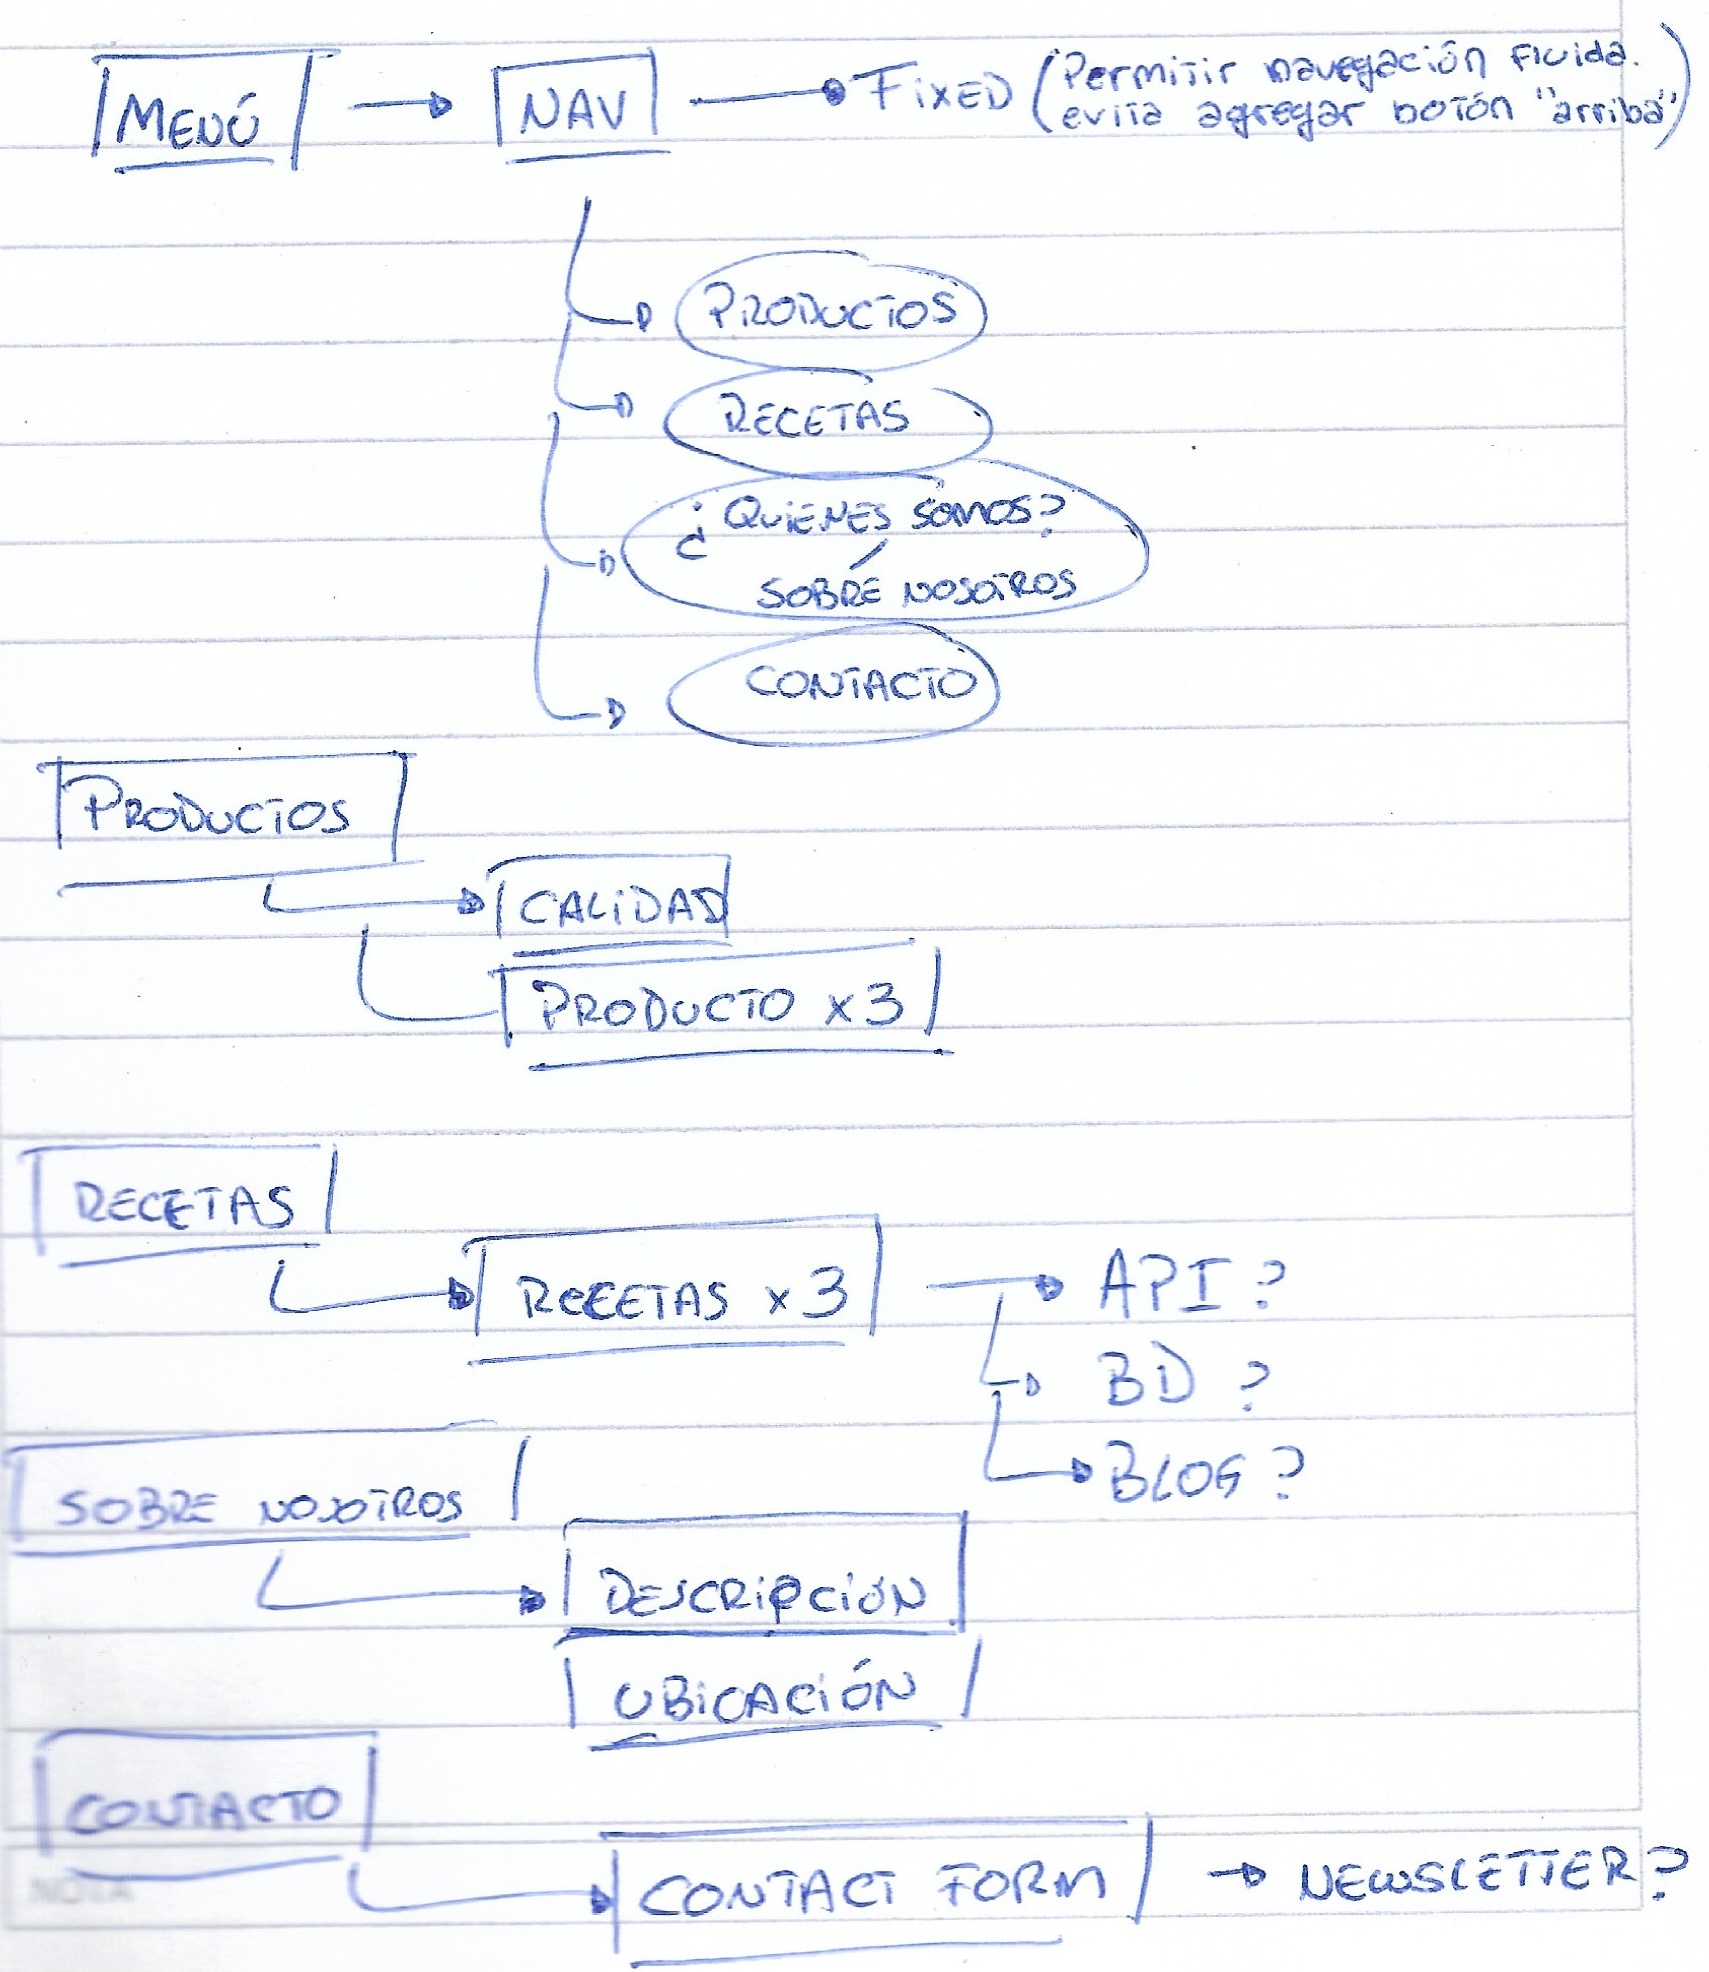 MENÚ → NAV → FIXED (Permitir navegación fluida.
evita agregar botón "arriba")
PRODUCTOS
RECETAS
¿QUIENES SOMOS?
/
SOBRE NOSOTROS
CONTACTO
PRODUCTOS
CALIDAD
PRODUCTO x3
RECETAS
RECETAS x3 → API?
BD?
BLOG?
SOBRE NOSOTROS
DESCRIPCIÓN
UBICACIÓN
CONTACTO
CONTACT FORM → NEWSLETTER?
NOTA